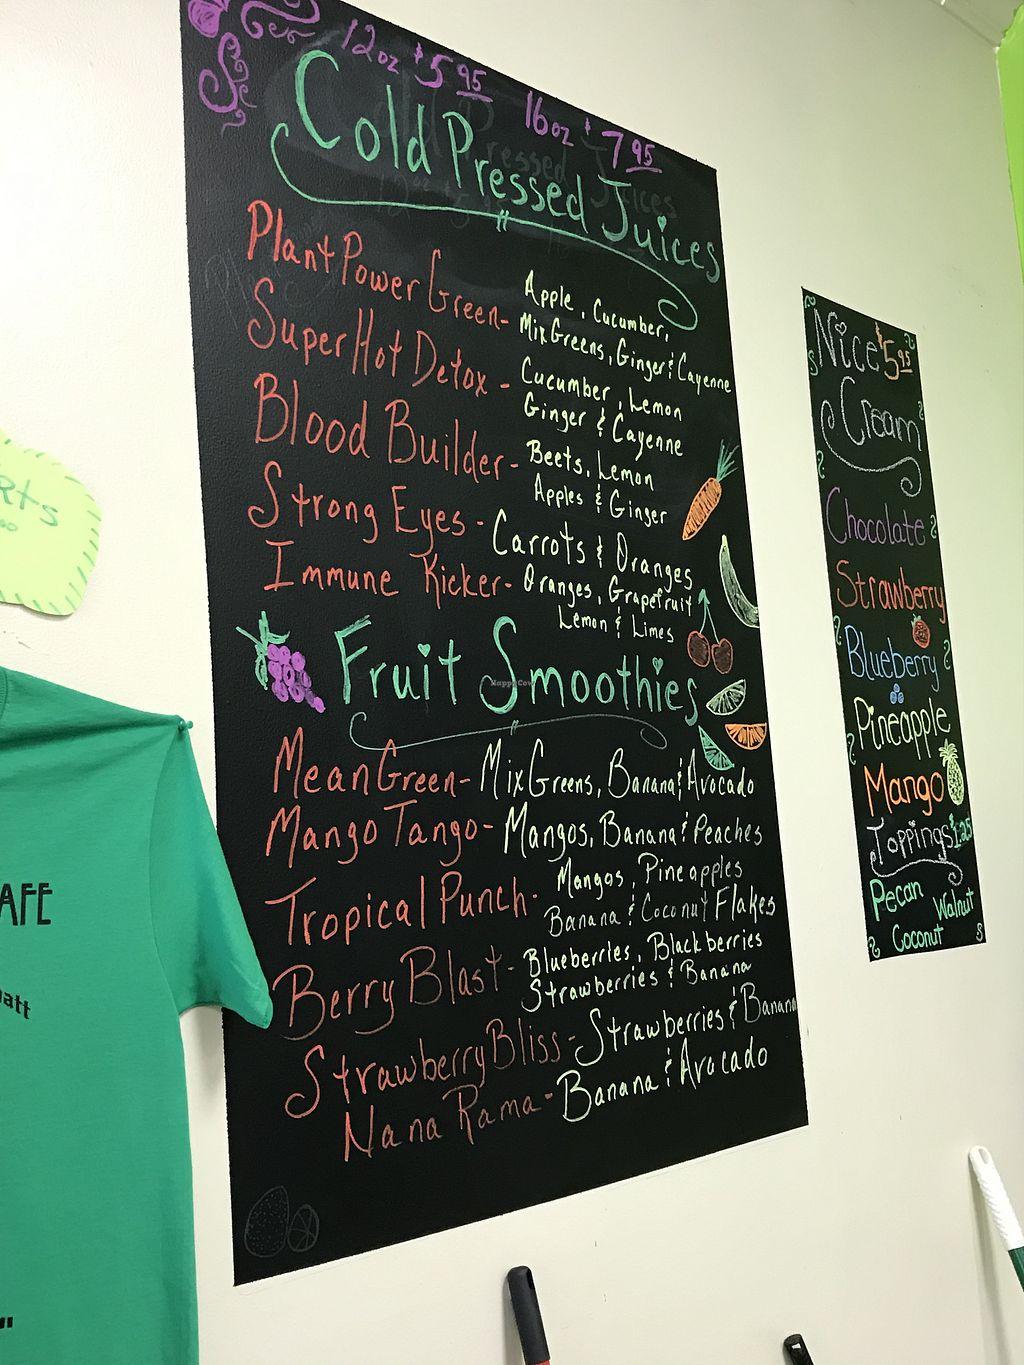 12oz $5.95 16oz $7.95
Cold Pressed Juices
Plant Power Green - Apple, Cucumber,
Mix Greens, Ginger & Cayenne
Super Hot Detox - Cucumber, Lemon
Ginger & Cayenne
Blood Builder - Beets, Lemon
Apples & Ginger
Strong Eyes - Carrots & Oranges
Immune Kicker - Oranges, Grapefruit
Lemon & Limes
Fruit Smoothies
HappyCow
Mean Green - Mix Greens, Banana & Avocado
Mango Tango - Mangos, Banana & Peaches
Tropical Punch - Mangos, Pineapples
Banana & Coconut Flakes
Berry Blast - Blueberries, Blackberries
Strawberries & Banana
Strawberry Bliss - Strawberries & Banana
Nana Rama - Banana & Avocado
Nice $5.95
Cream
Chocolate
Strawberry
Blueberry
Pineapple
Mango
Toppings $1.25
Pecan Walnut
Coconut
AFE
att